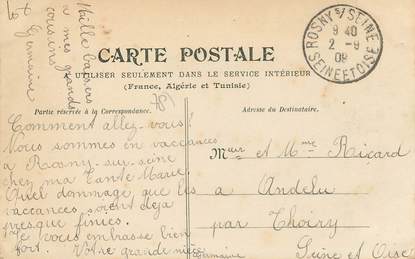 Mille baisers
à mes grands
cousins
Germaine
CARTE POSTALE
A UTILISER SEULEMENT DANS LE SERVICE INTÉRIEUR
(France, Algérie et Tunisie)
ROSNY S/ SEINE
9 40
2 - 9
09
SEINE ET OISE
781
Partie réservée à la Correspondance.
Adresse du Destinataire.
Comment allez-vous!
Nous sommes en vaccances
a Rosny-sur-seine
chez ma tante Marie.
Quel dommage que les
vaccances soient deja
presque finies.
Je vous embrasse bien
fort. Votre grande nièce
Germaine
Meur et Mme Ricard
a Andelu
par Thoiry
Seine et Oise